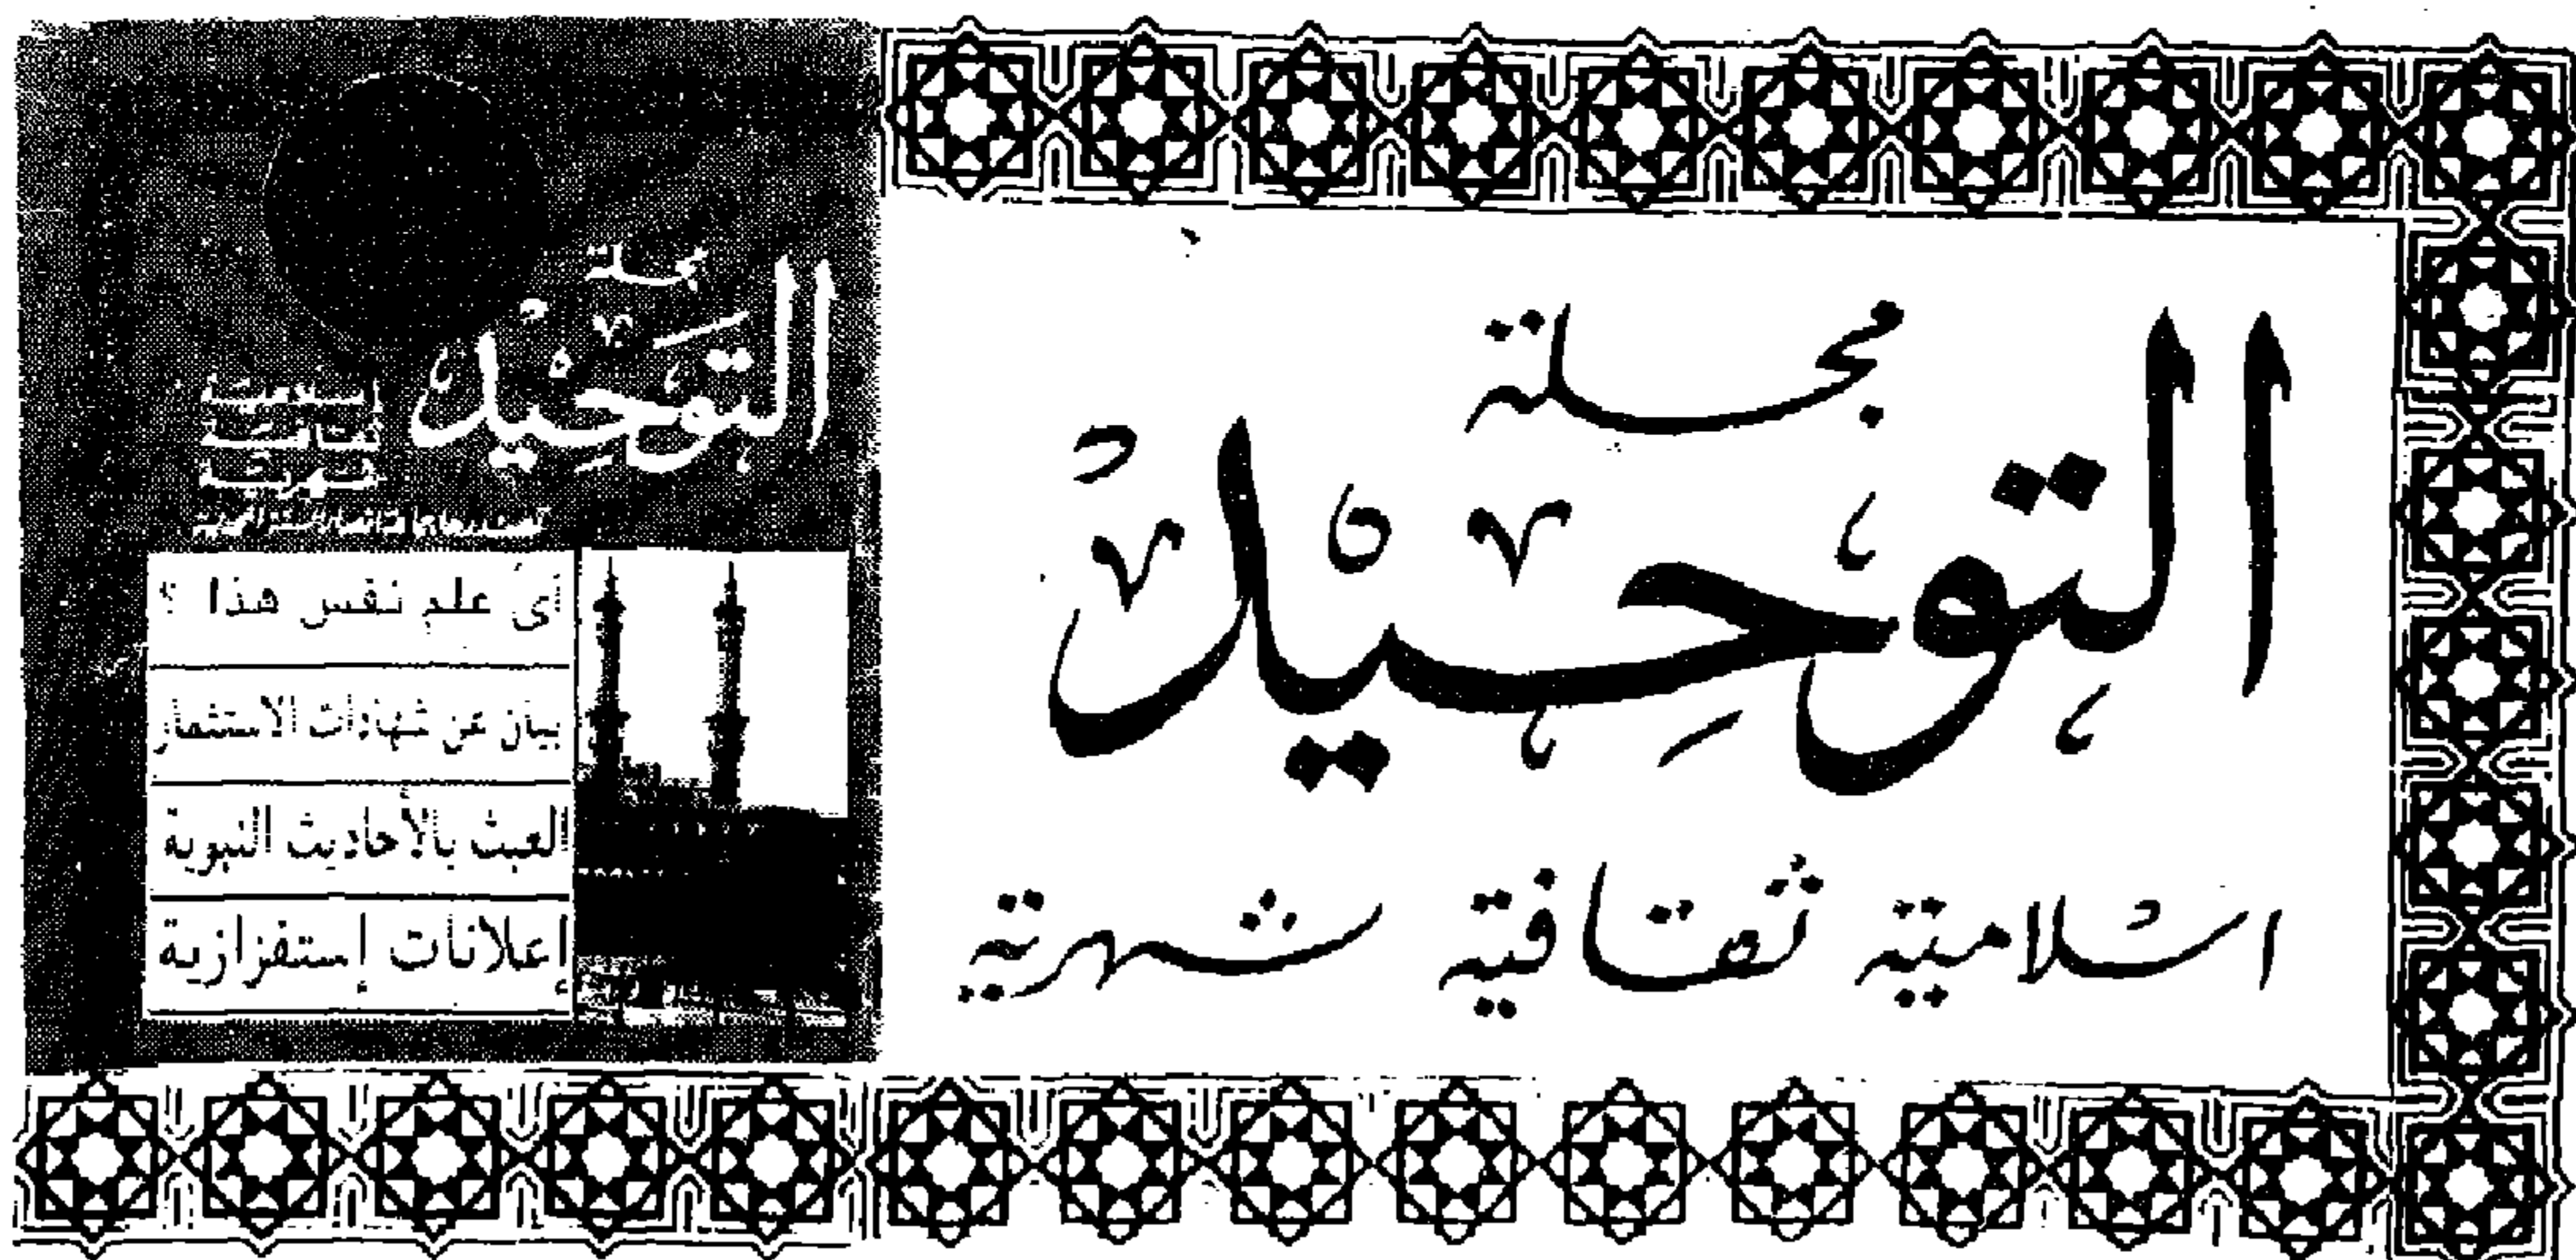 مجلة
التوحيد
اسلامية ثقافية شهرية
مجلة
التوحيد
إسلامية
ثقافية
شهرية
أى علم نفس هذا ؟
بيان عن شهادات الاستثمار
العبث بالأحاديث النبوية
إعلانات إستفزازية